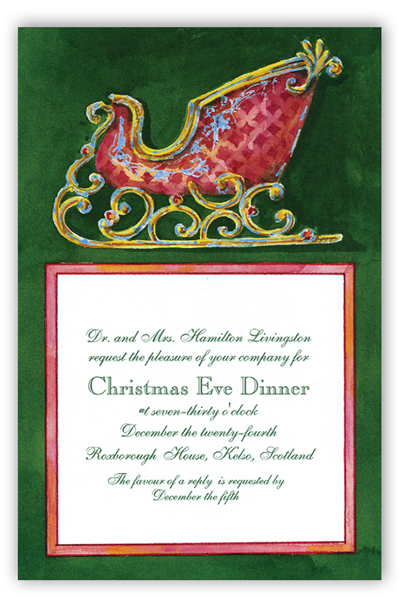 Dr. and Mrs. Hamilton Livingston
request the pleasure of your company for
Christmas Eve Dinner
at seven-thirty o'clock
December the twenty-fourth
Roxborough House, Kelso, Scotland
The favour of a reply is requested by
December the fifth